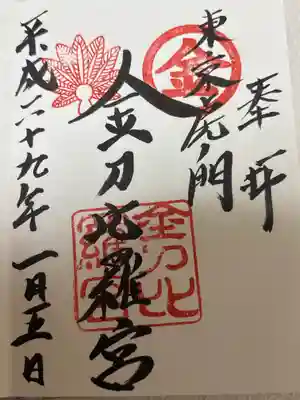 奉拝
東京虎ノ門
金
金刀比羅宮
金刀比
羅宮
平成二十九年 一月五日